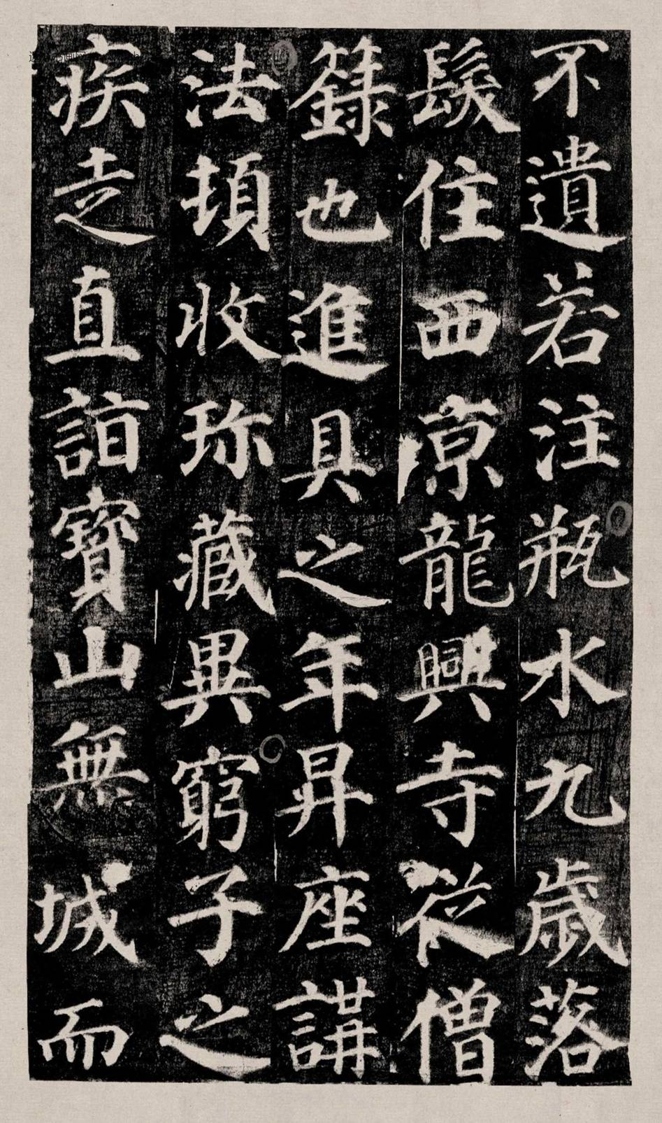 不遺若注瓶水九歲落
髮住西京龍興寺從僧
籙也進具之年昇座講
法頓收珎藏異窮子之
疾走直詣寶山無𡸁城而